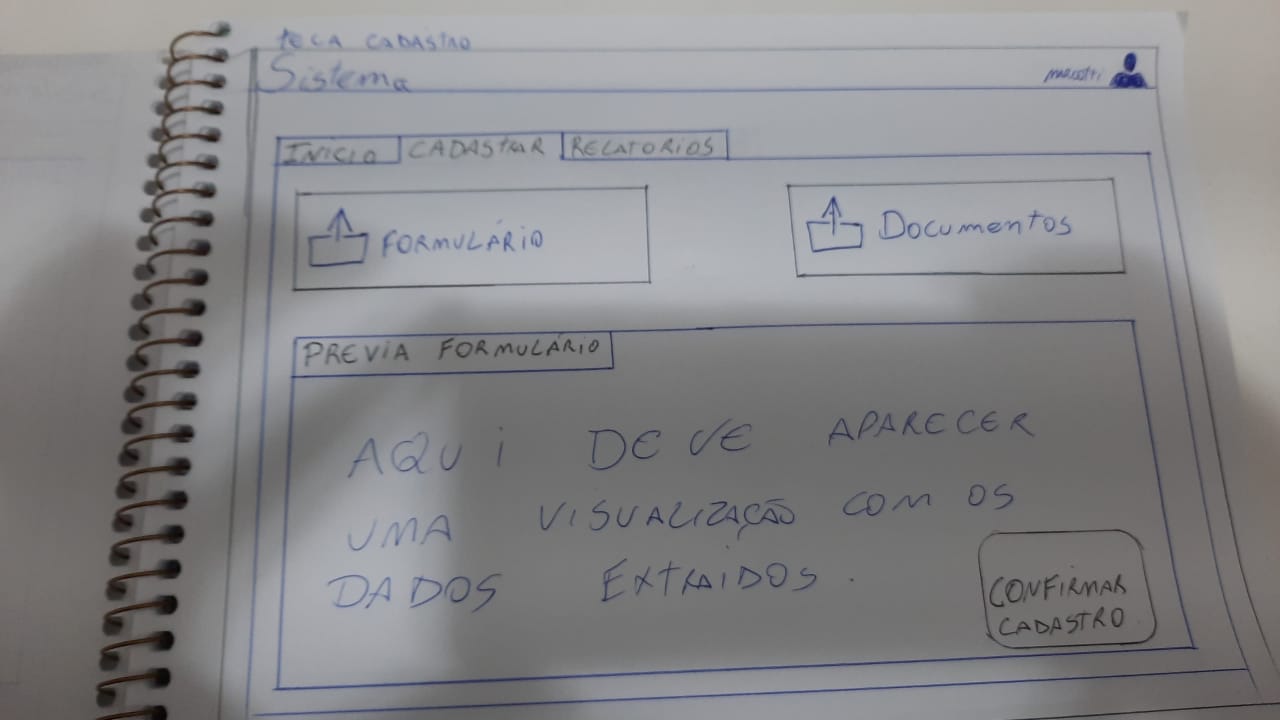 tela CADASTRO
Sistema
INICIO CADASTRAR RELATORIOS
FORMULÁRIO
Documentos
PREVIA FORMULÁRIO
AQUI DEVE APARECER
UMA VISUALIZAÇÃO COM OS
DADOS EXTRAIDOS.
CONFIRMAR
CADASTRO